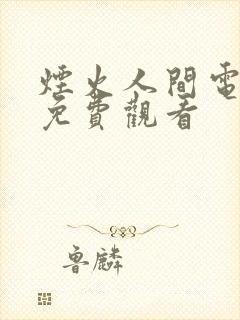 煙火人間電
免費觀看
魯麟